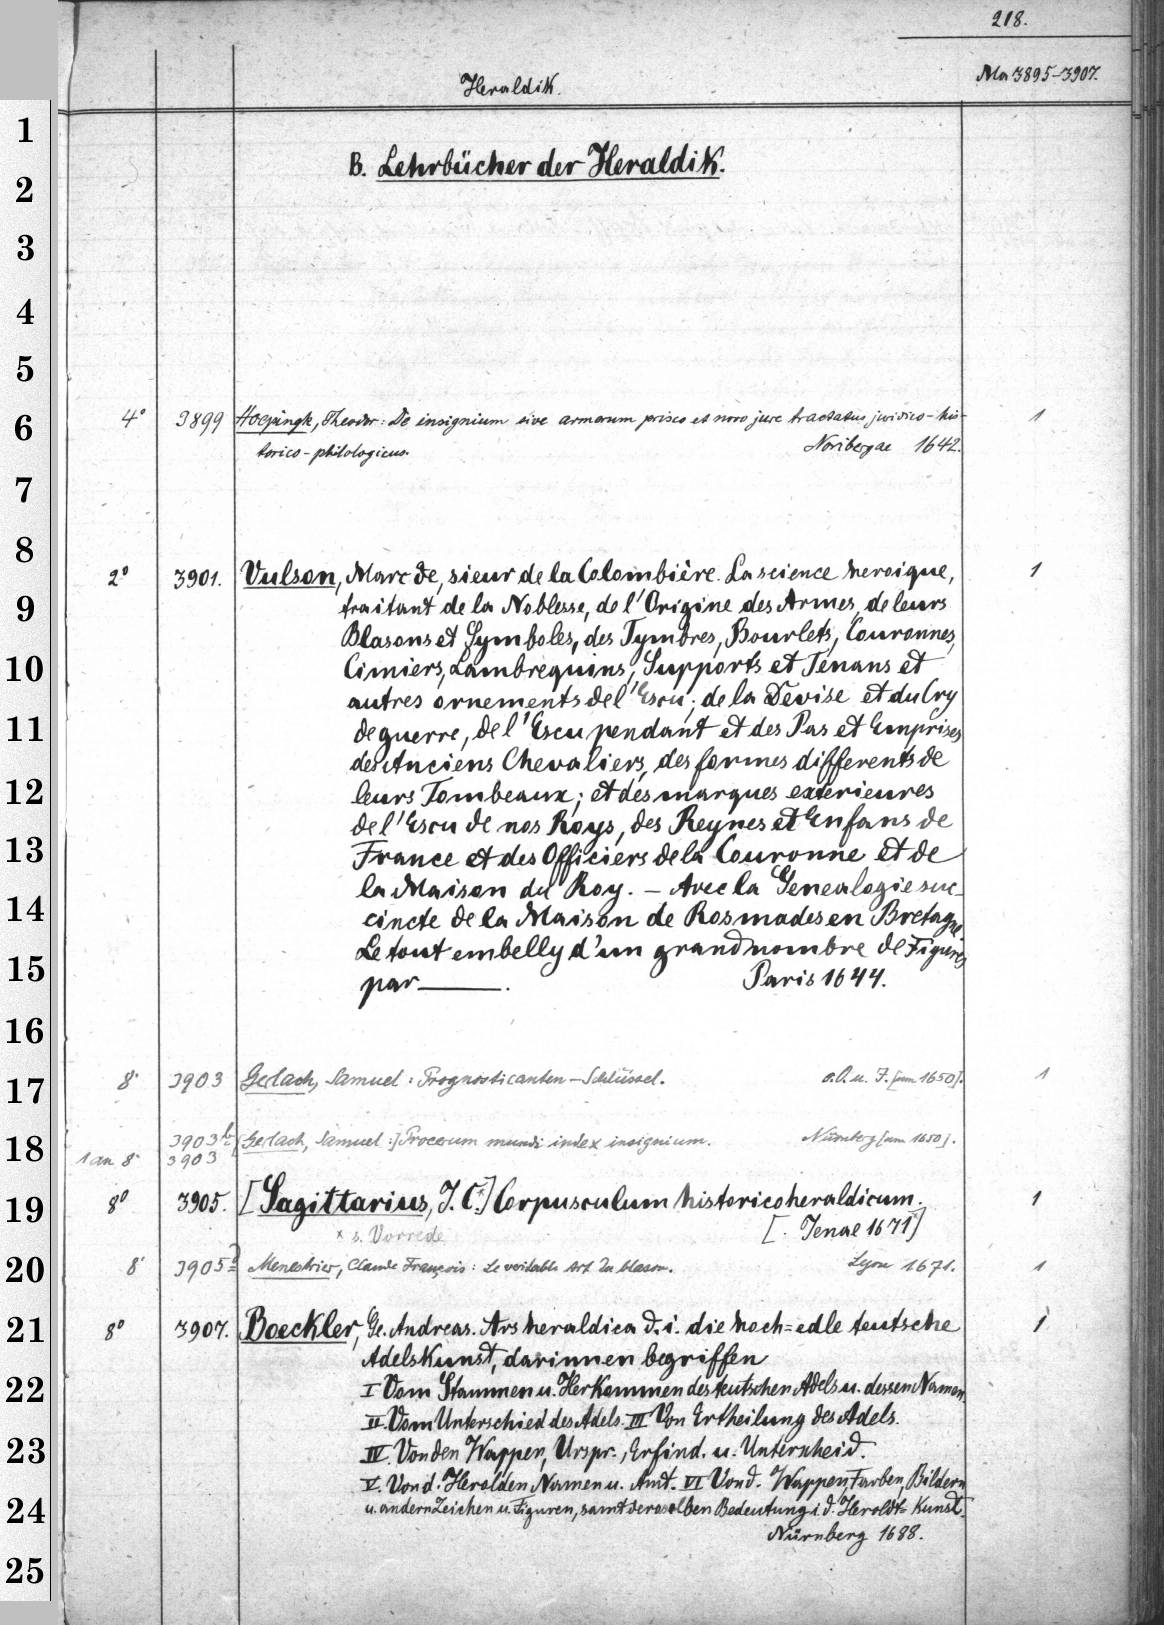 218.
Heraldik.
Ma 3895-3907.
B. Lehrbücher der Heraldik.
4° 3899 Hoepingk, Theodor: De insignium sive armorum prisco et novo jure tractatus juridico-his- 1
torico-philologicus. Noribergae 1642.
2° 3901. Vulson, Marc de, sieur de la Colombière. La science heroique, 1
traitant de la Noblesse, de l'Origine des Armes, de leurs
Blasons et Symboles, des Tymbres, Bourlets, Couronnes,
Cimiers, Lambrequins, Supports et Tenans et
autres ornements de l'Escu; de la Devise et du Cry
de guerre, de l'Escu pendant et des Pas et Emprises
des Anciens Chevaliers, des formes differents de
leurs Tombeaux; et des marques exterieures
de l'Escu de nos Roys, des Reynes et Enfans de
France et des Officiers de la Couronne et de
la Maison du Roy. - Avec la Genealogie suc-
cincte de la Maison de Rosmades en Bretagne.
Le tout embelly d'un grand nombre de Figures
par ———. Paris 1644.
8° 3903 Gerlach, Samuel: Prognosticanten-Schlüssel. o.O.u.J. [um 1650]. 1
3903b [Gerlach, Samuel:] Procerum mundi index insignium. Nürnberg [um 1650].
1 an 8° 3903
8° 3905. [Sagittarius, J. C.*] Corpusculum historico heraldicum. 1
[. Jenae 1671]
x s. Vorrede
8° 3905a Menestrier, Claude François: Le veritable Art du blason. Lyon 1671. 1
8° 3907. Boeckler, Ge. Andreas. Ars heraldica d. i. die hoch=edle teutsche 1
Adelskunst, darinnen begriffen
I Vom Stammen u. Herkommen des teutschen Adels u. dessen Namen
II. Vom Unterschied des Adels. III Von Ertheilung des Adels.
IV. Von den Wappen, Urspr., Erfind. u. Unterscheid.
V. Von d. Herolden Namen u. Amt. VI Von d. Wappen, Farben, Bildern
u. andern Zeichen u. Figuren, samt deroselben Bedeutung i. d. Heroldt= Kunst.
Nürnberg 1688.
1
2
3
4
5
6
7
8
9
10
11
12
13
14
15
16
17
18
19
20
21
22
23
24
25